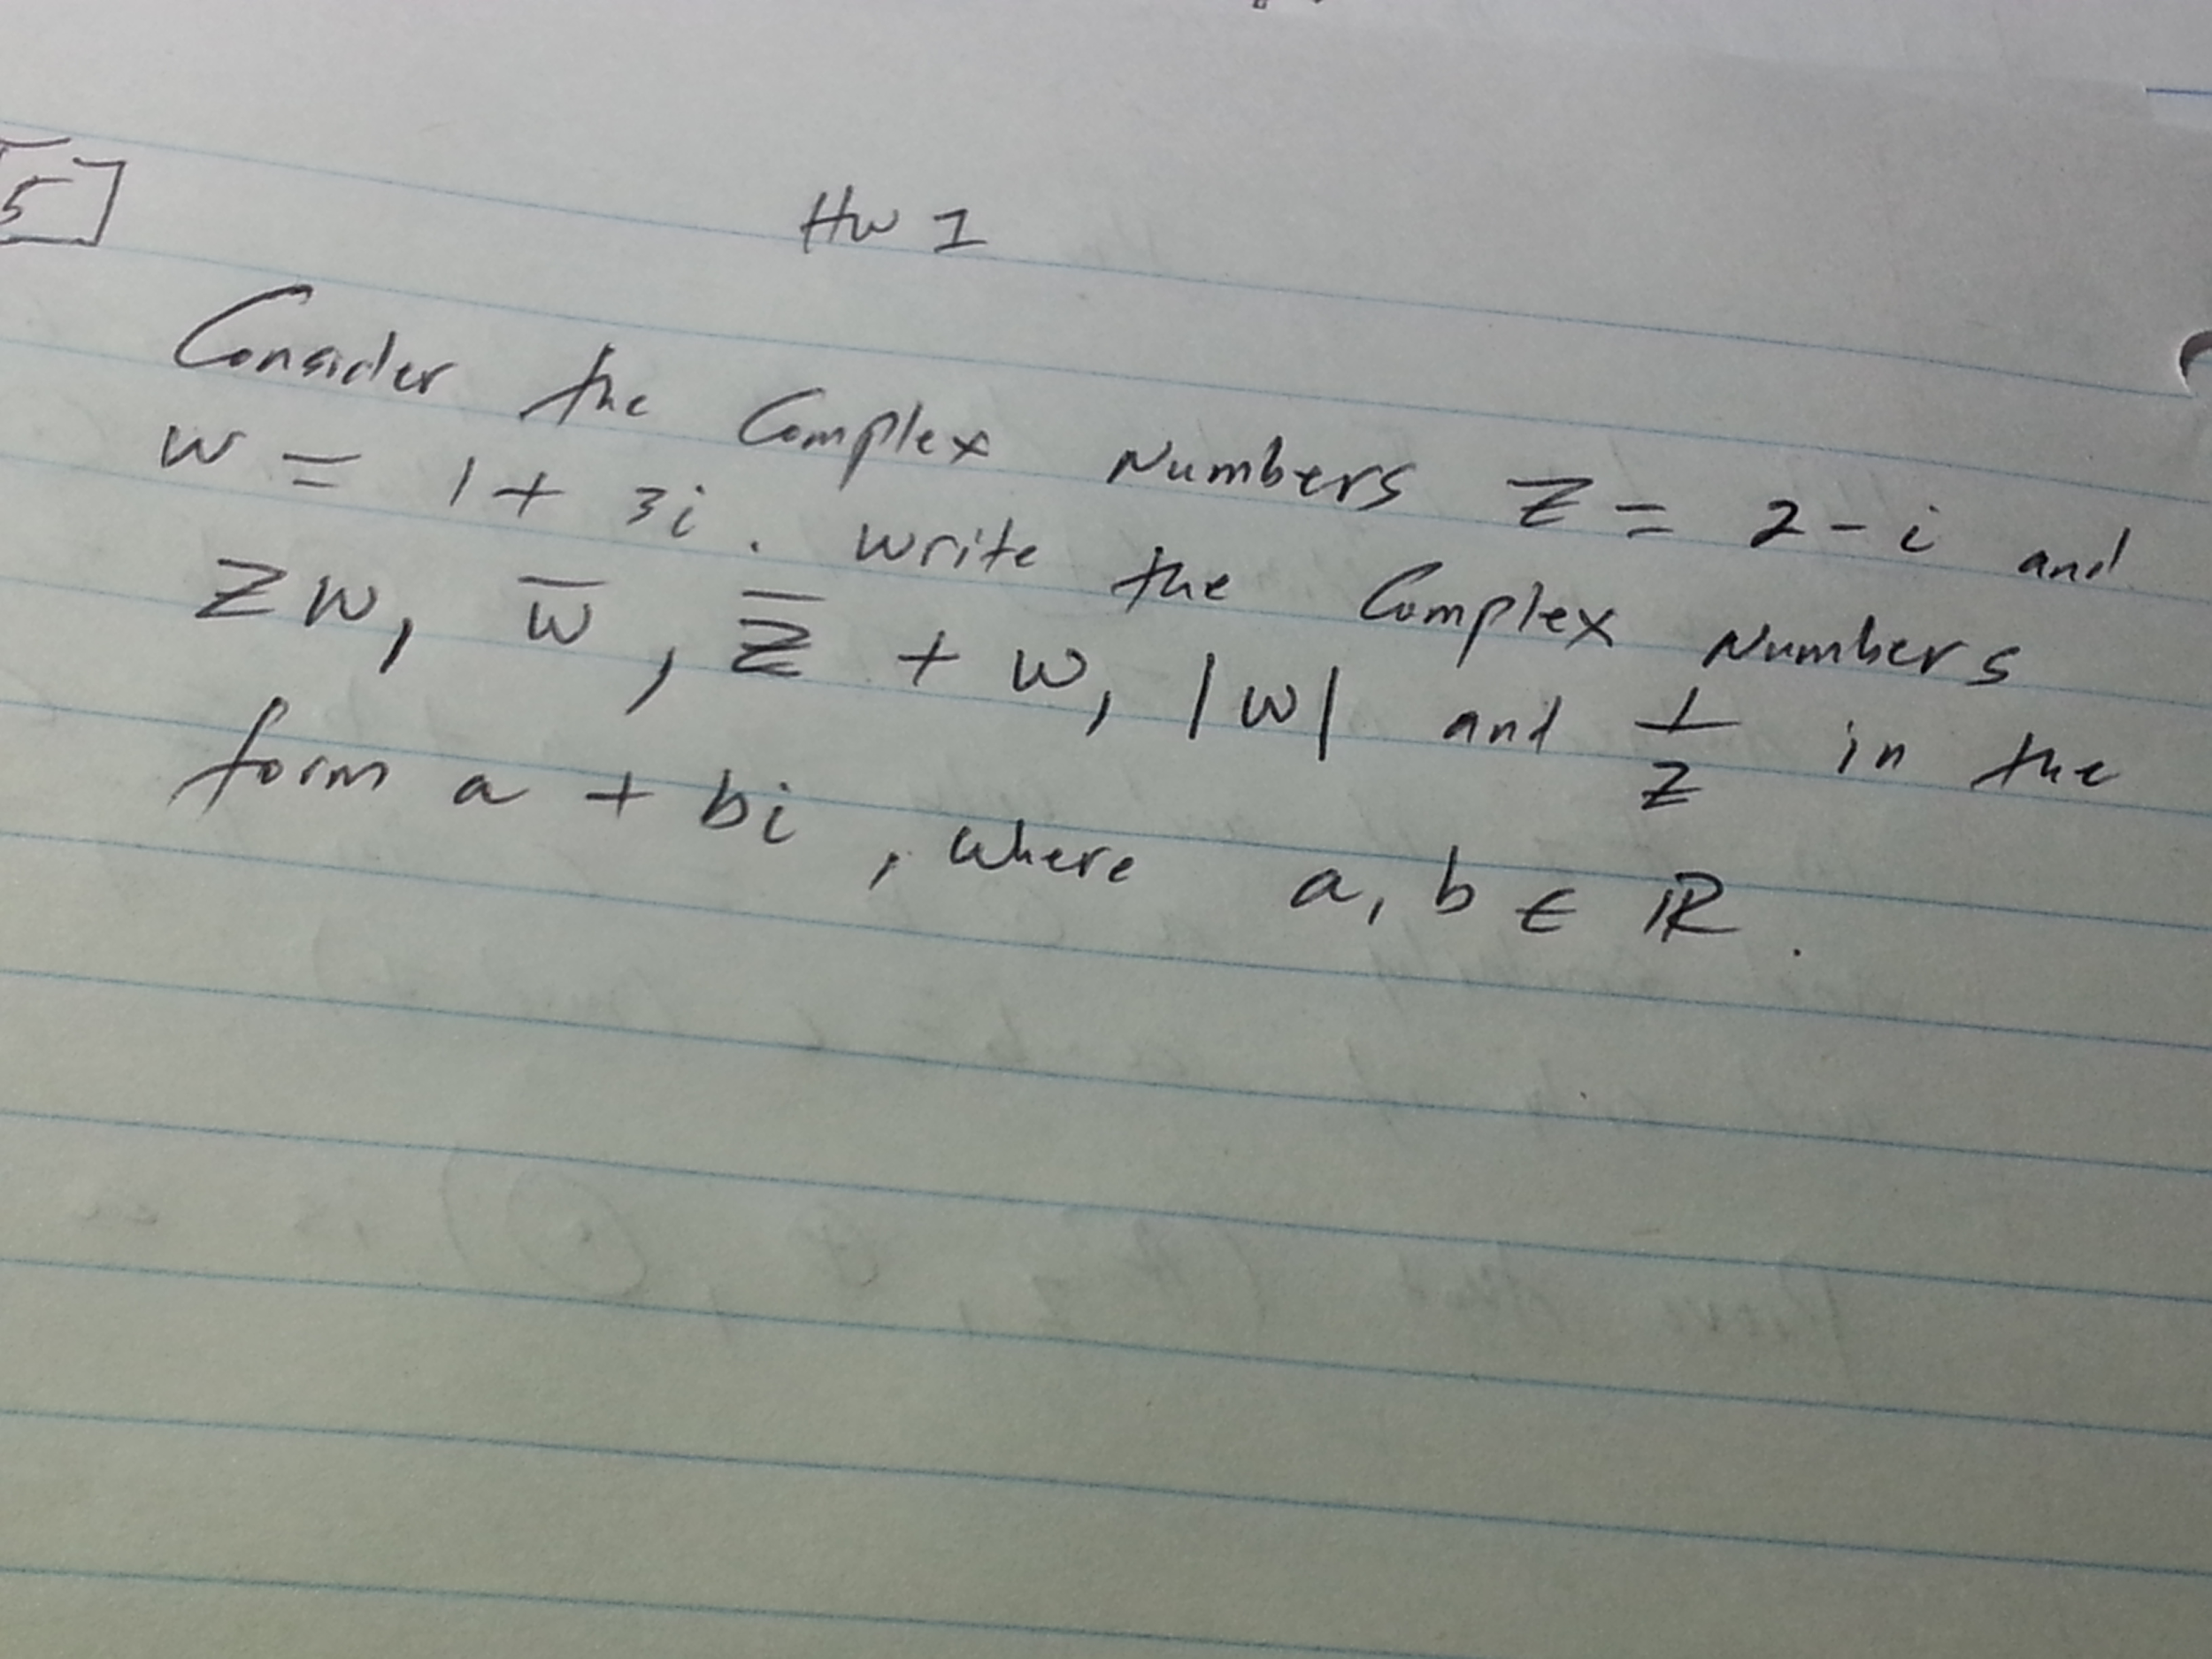 5
HW 1
Consider the Complex Numbers Z = 2 - i and
W = 1 + 3i. write the Complex Numbers
ZW, W̅, Z̅ + W, |W| and 1/Z in the
form a + bi, where a, b ∈ ℝ.